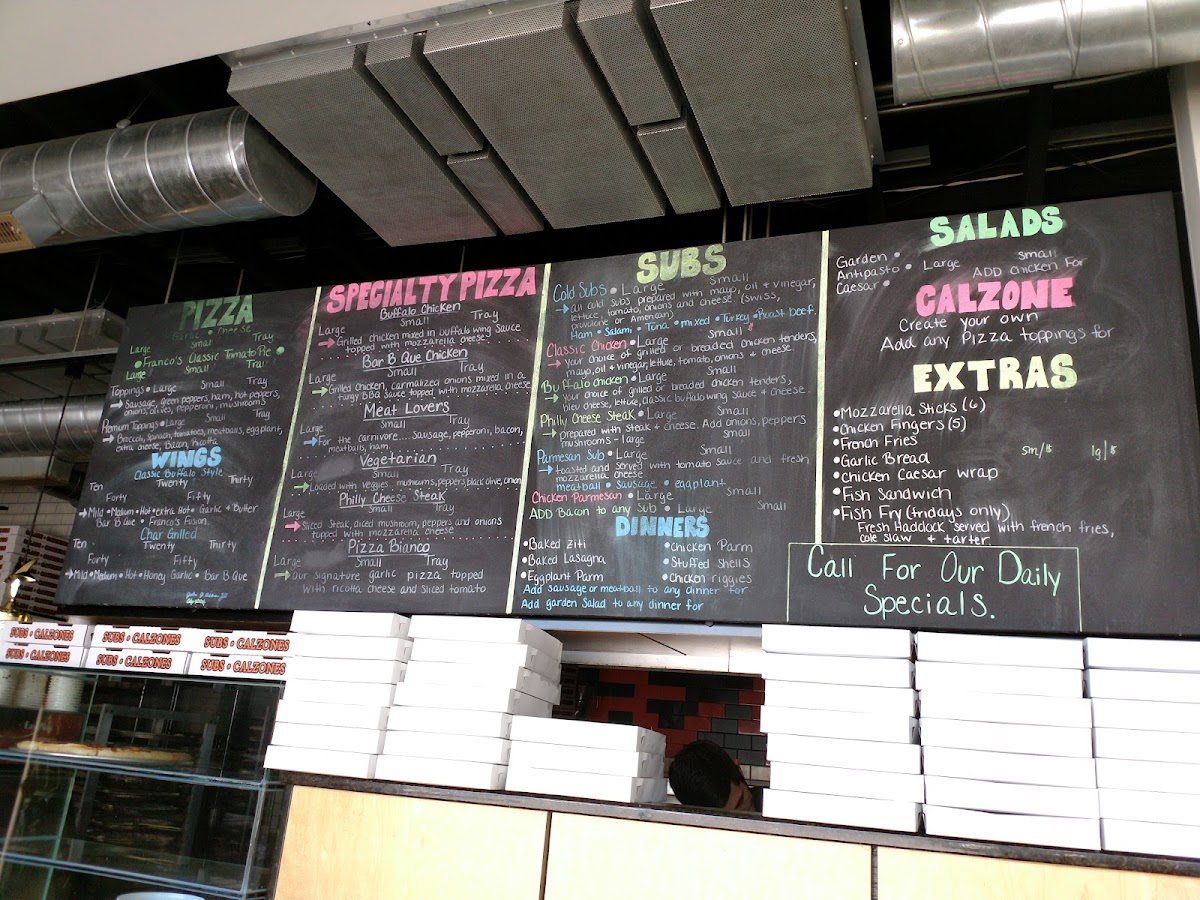 PIZZA
Cheese
Large Small Tray
Franco's Classic Tomato Pie
Large Small Tray
Toppings • Large Small Tray
Sausage, green peppers, ham, hot peppers,
onions, olives, pepperoni, mushrooms
Premium Toppings • Large Small Tray
Broccoli, spinach, tomatoes, meatballs, eggplant,
extra cheese, Bacon, Ricotta
WINGS
Classic Buffalo Style
Ten Twenty Thirty
Forty Fifty
Mild • Medium • Hot • extra Hot • Garlic & Butter
Bar B Que • Franco's Fusion
Char Grilled
Ten Twenty Thirty
Forty Fifty
Mild • Medium • Hot • Honey Garlic • Bar B Que
SPECIALTY PIZZA
Buffalo Chicken
Large Small Tray
Grilled chicken mixed in buffalo wing sauce
topped with mozzarella cheese
Bar B Que Chicken
Large Small Tray
Grilled chicken, carmalized onions mixed in a
tangy BBQ sauce topped with mozzarella cheese
Meat Lovers
Large Small Tray
For the carnivore.... Sausage, pepperoni, bacon,
meatballs, ham
Vegetarian
Large Small Tray
Loaded with veggies.. mushrooms, peppers, black olive, onion
Philly Cheese Steak
Large Small Tray
Sliced steak, diced mushroom, peppers and onions
topped with mozzarella cheese
Pizza Bianco
Large Small Tray
our signature garlic pizza topped
with ricotta cheese and sliced tomato
SUBS
Cold Subs • Large Small
all cold subs prepared with mayo, oil & vinegar,
lettuce, tomato, onions and cheese (swiss,
provolone or American)
Ham • Salami • Tuna • mixed • Turkey • Roast Beef
Classic Chicken • Large Small
your choice of grilled or breaded chicken tenders,
mayo, oil & vinegar, lettuce, tomato, onions & cheese
Buffalo chicken • Large Small
your choice of grilled or breaded chicken tenders,
bleu cheese, lettuce, classic buffalo wing sauce & cheese
Philly Cheese Steak • Large Small
prepared with steak & cheese. Add onions, peppers
mushrooms - large small
Parmesan Sub • Large Small
toasted and served with tomato sauce and fresh
mozzarella cheese
meatball • sausage • eggplant
Chicken Parmesan • Large Small
ADD Bacon to any Sub • Large Small
DINNERS
• Baked Ziti • Chicken Parm
• Baked Lasagna • Stuffed Shells
• Eggplant Parm • Chicken riggies
Add sausage or meatball to any dinner for
Add garden salad to any dinner for
SALADS
Garden •
Antipasto • Large Small
Caesar • ADD chicken For
CALZONE
Create your own
Add any pizza toppings for
EXTRAS
• Mozzarella Sticks (6)
• Chicken Fingers (5)
• French Fries sm/$ lg/$
• Garlic Bread
• Chicken Caesar wrap
• Fish Sandwich
• Fish Fry (fridays only)
Fresh Haddock served with french fries,
cole slaw & tarter.
Call For Our Daily
Specials.
SUBS • CALZONES
SUBS • CALZONES
SUBS • CALZONES
SUBS • CALZONES
SUBS • CALZONES
SUBS • CALZONES